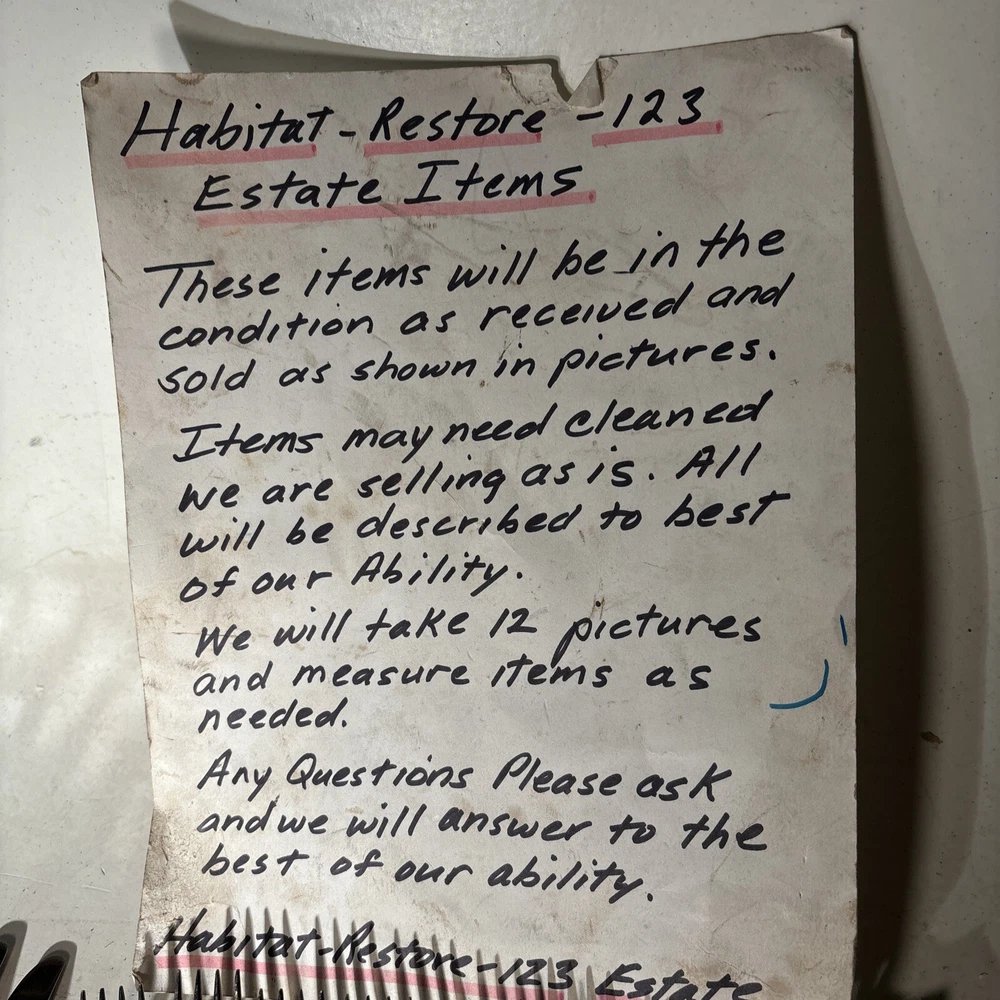 Habitat-Restore-123
Estate Items
These items will be in the
condition as received and
sold as shown in pictures.
Items may need cleaned
we are selling as is. All
will be described to best
of our Ability.
We will take 12 pictures
and measure items as
needed.
Any Questions Please ask
and we will answer to the
best of our ability.
Habitat-Restore-123 Estate